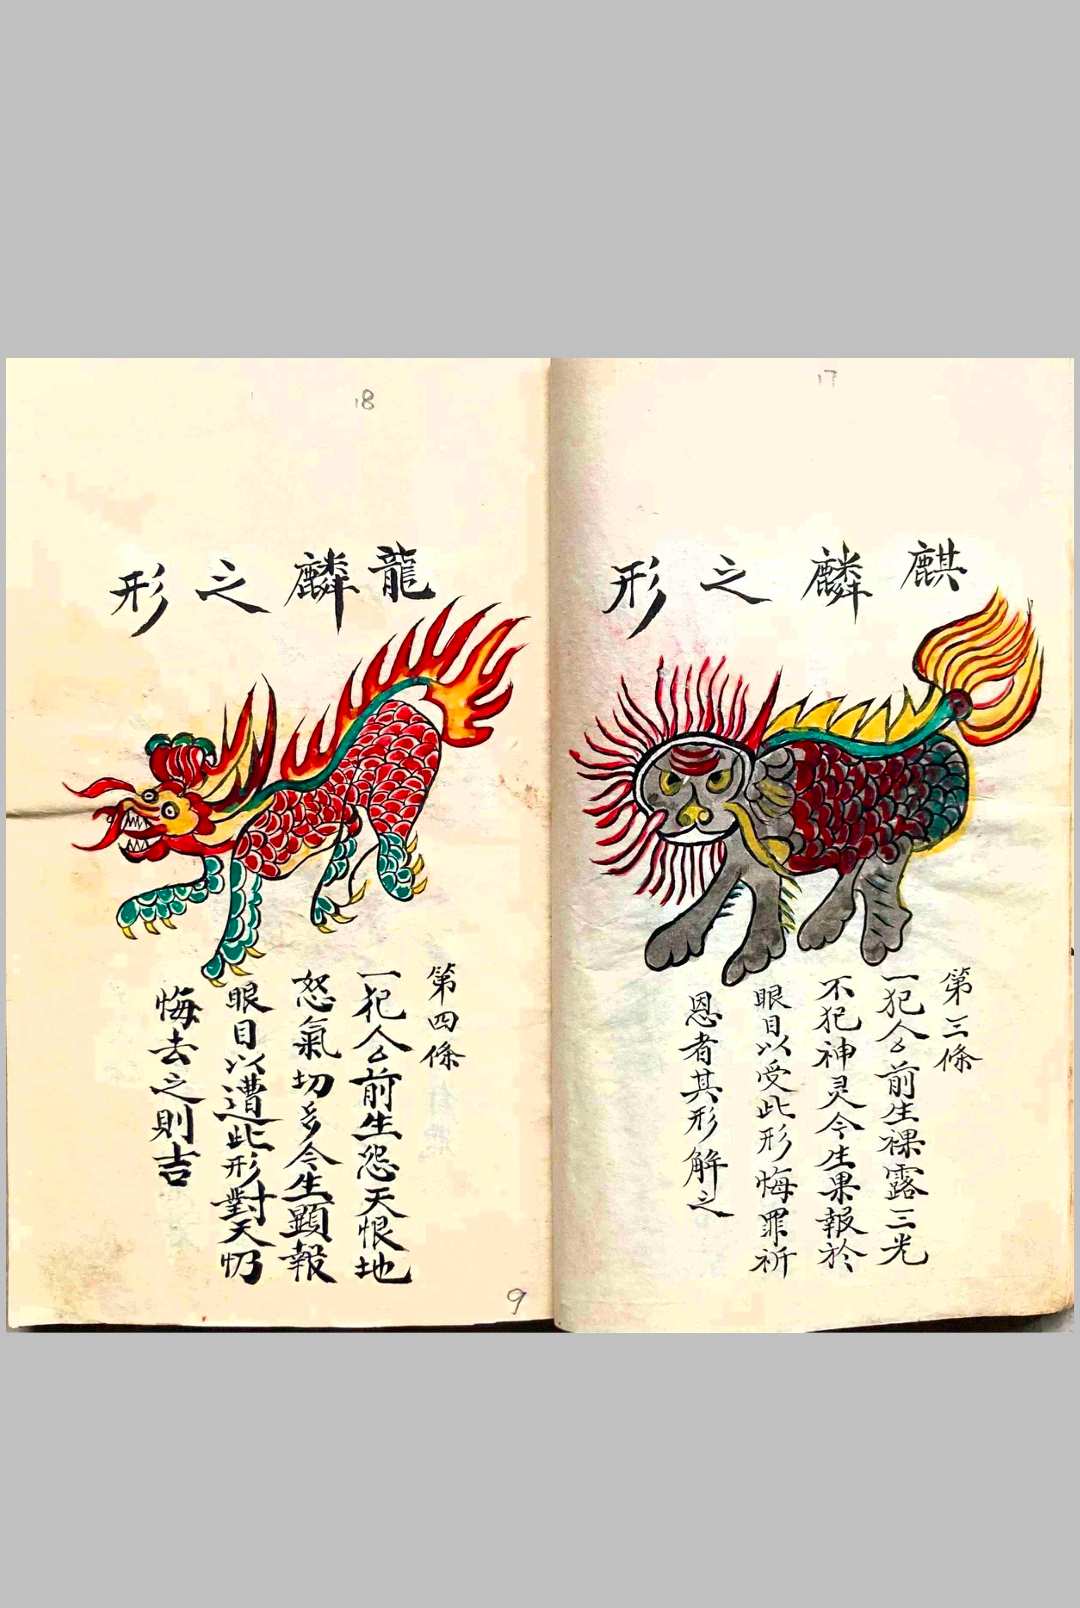 17
麒麟之形
第三條
一犯人么前生裸露三光
不犯神灵今生果報於
眼目以受此形悔罪祈
恩者其形解之
18
龍麟之形
第四條
一犯人么前生怨天恨地
怒氣切多今生顕報
眼目以遭此形對天忉
悔去之則吉
9